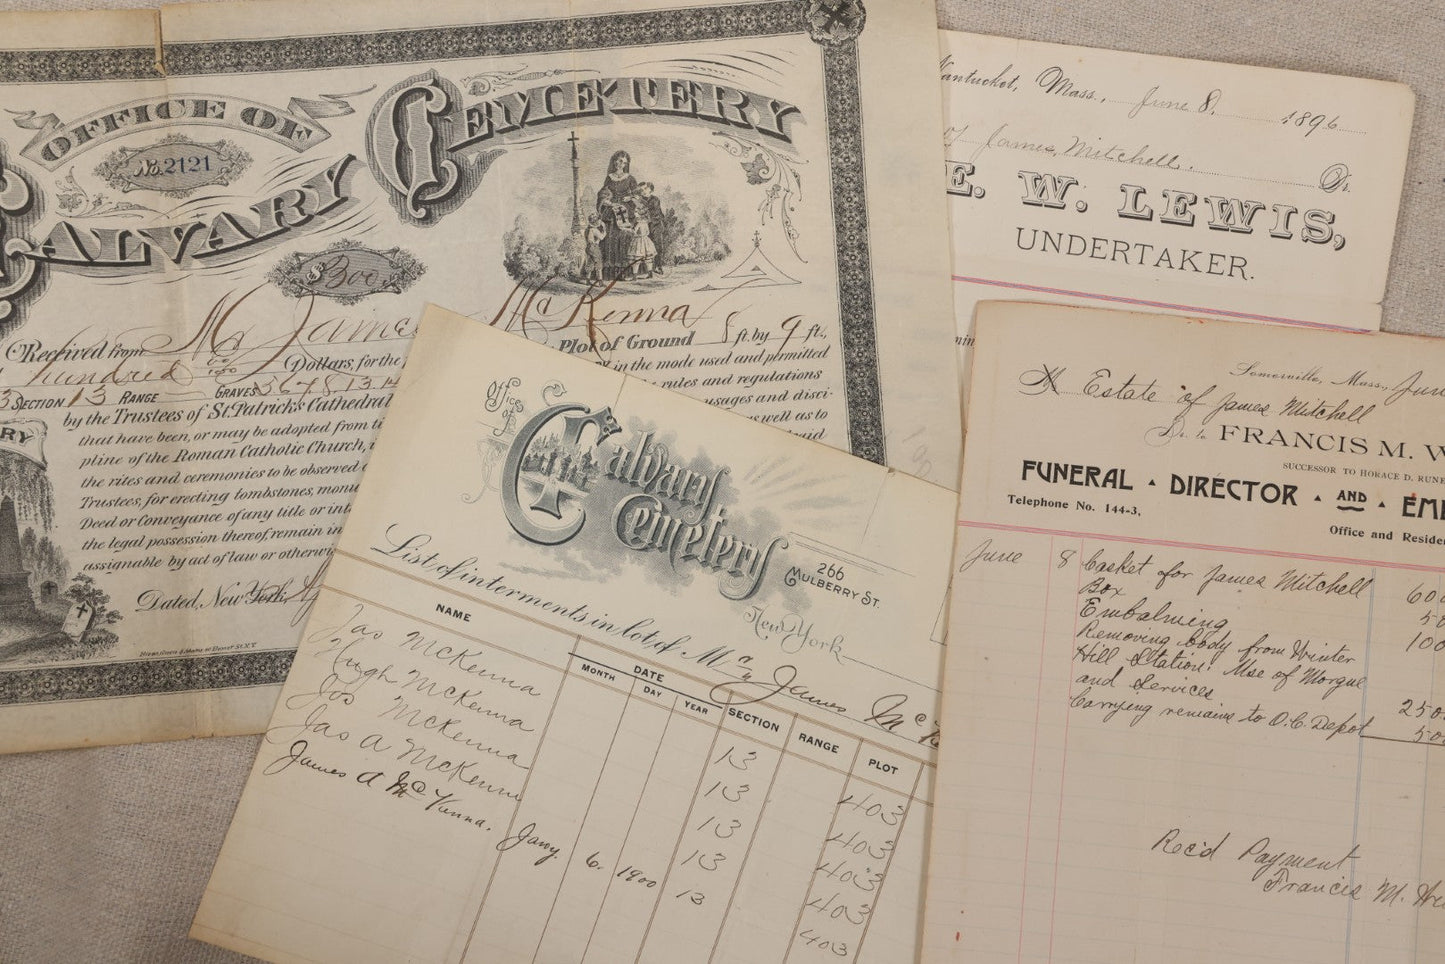 OFFICE OF
No. 2121
CALVARY CEMETERY
$ 300
Received from Mr James McKenna
hundred 00/100 Dollars, for the Plot of Ground 8 ft. by 9 ft.,
3 SECTION 13 RANGE GRAVES 3 6 7 8 13 14 in the mode used and permitted
by the Trustees of St. Patrick's Cathedral rules and regulations
that have been, or may be adopted from ti usages and disci-
pline of the Roman Catholic Church, as well as to
the rites and ceremonies to be observed
Trustees, for erecting tombstones, monu
Deed or Conveyance of any title or int
the legal possession thereof, remain in
assignable by act of law or otherwi
Dated, New York,
RY
Office of
Calvary
Cemetery
266
MULBERRY ST.
New York
List of interments in lot of Mr James McK
NAME DATE SECTION RANGE PLOT
MONTH DAY YEAR
Jas McKenna 13 403
Hugh McKenna 13 403
Jos McKenna 13 403
Jas A McKenna 13 403
James A McKenna. Jany. 6. 1900 13 403
Nantucket, Mass., June 8, 1896
of James Mitchell. Dr.
E. W. LEWIS,
UNDERTAKER.
Somerville, Mass., June
M Estate of James Mitchell
Dr. to FRANCIS M. W
SUCCESSOR TO HORACE D. RUNE
FUNERAL DIRECTOR AND EM
Telephone No. 144-3,
Office and Reside
June 8 Casket for James Mitchell 60
Box 5
Embalming 10
Removing body from Winter
Hill Station. Use of Morgue
and Services 25
Carrying remains to O.C. Depot 5
Rec'd Payment
Francis M. W